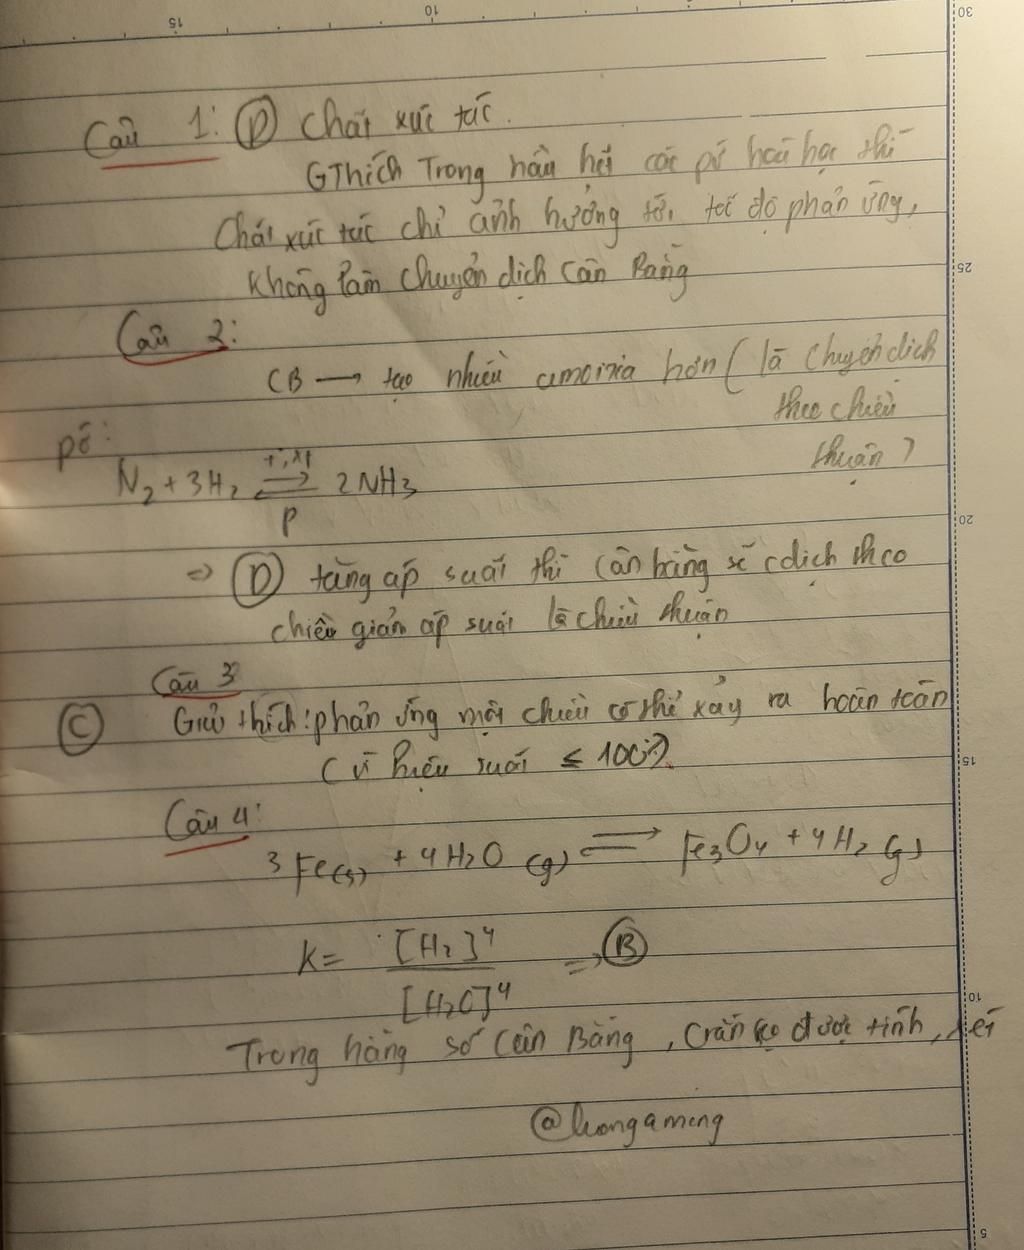 15 10 30
Câu 1: (D) Chất xúc tác.
GThích Trong hầu hết các pứ hoá học thì
Chất xúc tác chỉ ảnh hưởng tới tốc độ phản ứng,
không làm chuyển dịch cân bằng
25
Câu 2:
CB → tạo nhiều amoinia hơn ( là chuyển dịch
theo chiều
thuận )
pứ:
N2 + 3H2 ⇌ 2NH3
P
20
=> (D) tăng áp suất thì cân bằng sẽ cdịch theo
chiều giản áp suất là chiều thuận
Câu 3
(C) Giải thích: phản ứng một chiều có thể xảy ra hoàn toàn
( vì hiệu suất ≤ 100%)
15
Câu 4:
3 Fe(s) + 4H2O (g) ⇌ Fe3O4 + 4H2 (g)
K = [H2]^4 / [H2O]^4 => (B)
10
Trong hằng số Cân Bằng, Crắn ko được tính, xét
@luongameng
5